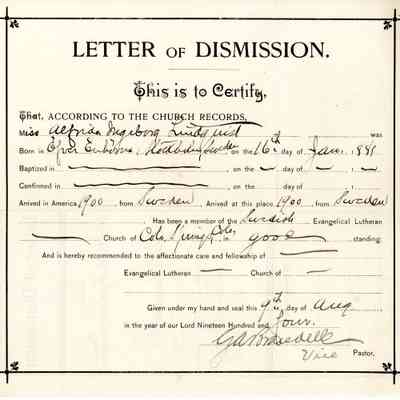 LETTER OF DISMISSION.
This is to Certify,
That, ACCORDING TO THE CHURCH RECORDS,
Miss Alfrida Ingeborg Lindquist was
Born in Sweden, on the 16th day of Jan. 1881
Baptized in — , on the — day of — , —
Confirmed in — , on the — day of — , —
Arrived in America 1900 , from Sweden , Arrived at this place 1900 , from Sweden
Has been a member of the Swedish Evangelical Lutheran
— Church of Colo. Springs Colo. in good standing:
And is hereby recommended to the affectionate care and fellowship of —
Evangelical Lutheran — Church of —
Given under my hand and seal this 9th day of Aug
in the year of our Lord Nineteen Hundred and four.
Vice Pastor.